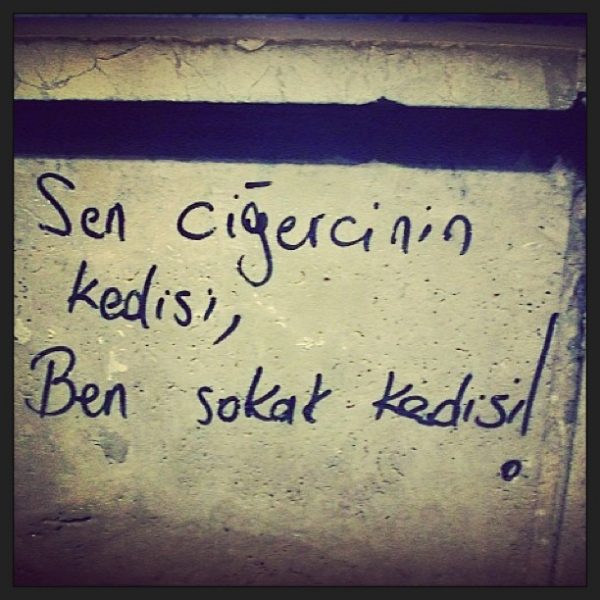 Sen ciğercinin
kedisi,
Ben sokak kedisi!